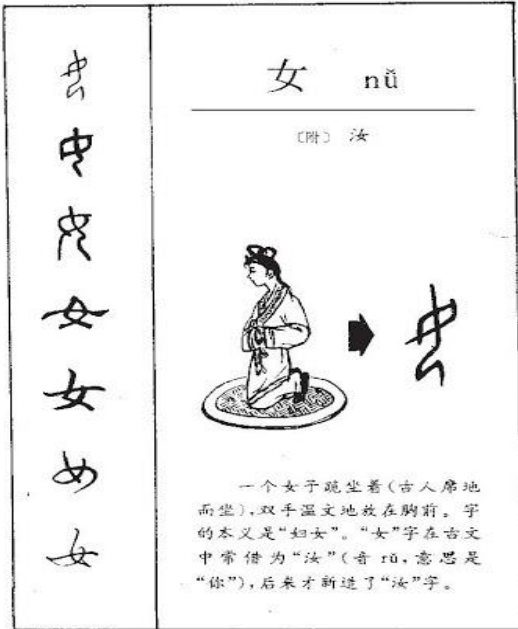 女 nǚ
〔附〕 汝
一个女子跪坐着(古人席地
而坐),双手温文地放在胸前。字
的本义是“妇女”。“女”字在古文
中常借为“汝”(音 rǔ,意思是
“你”),后来才新造了“汝”字。
女
女
女
女